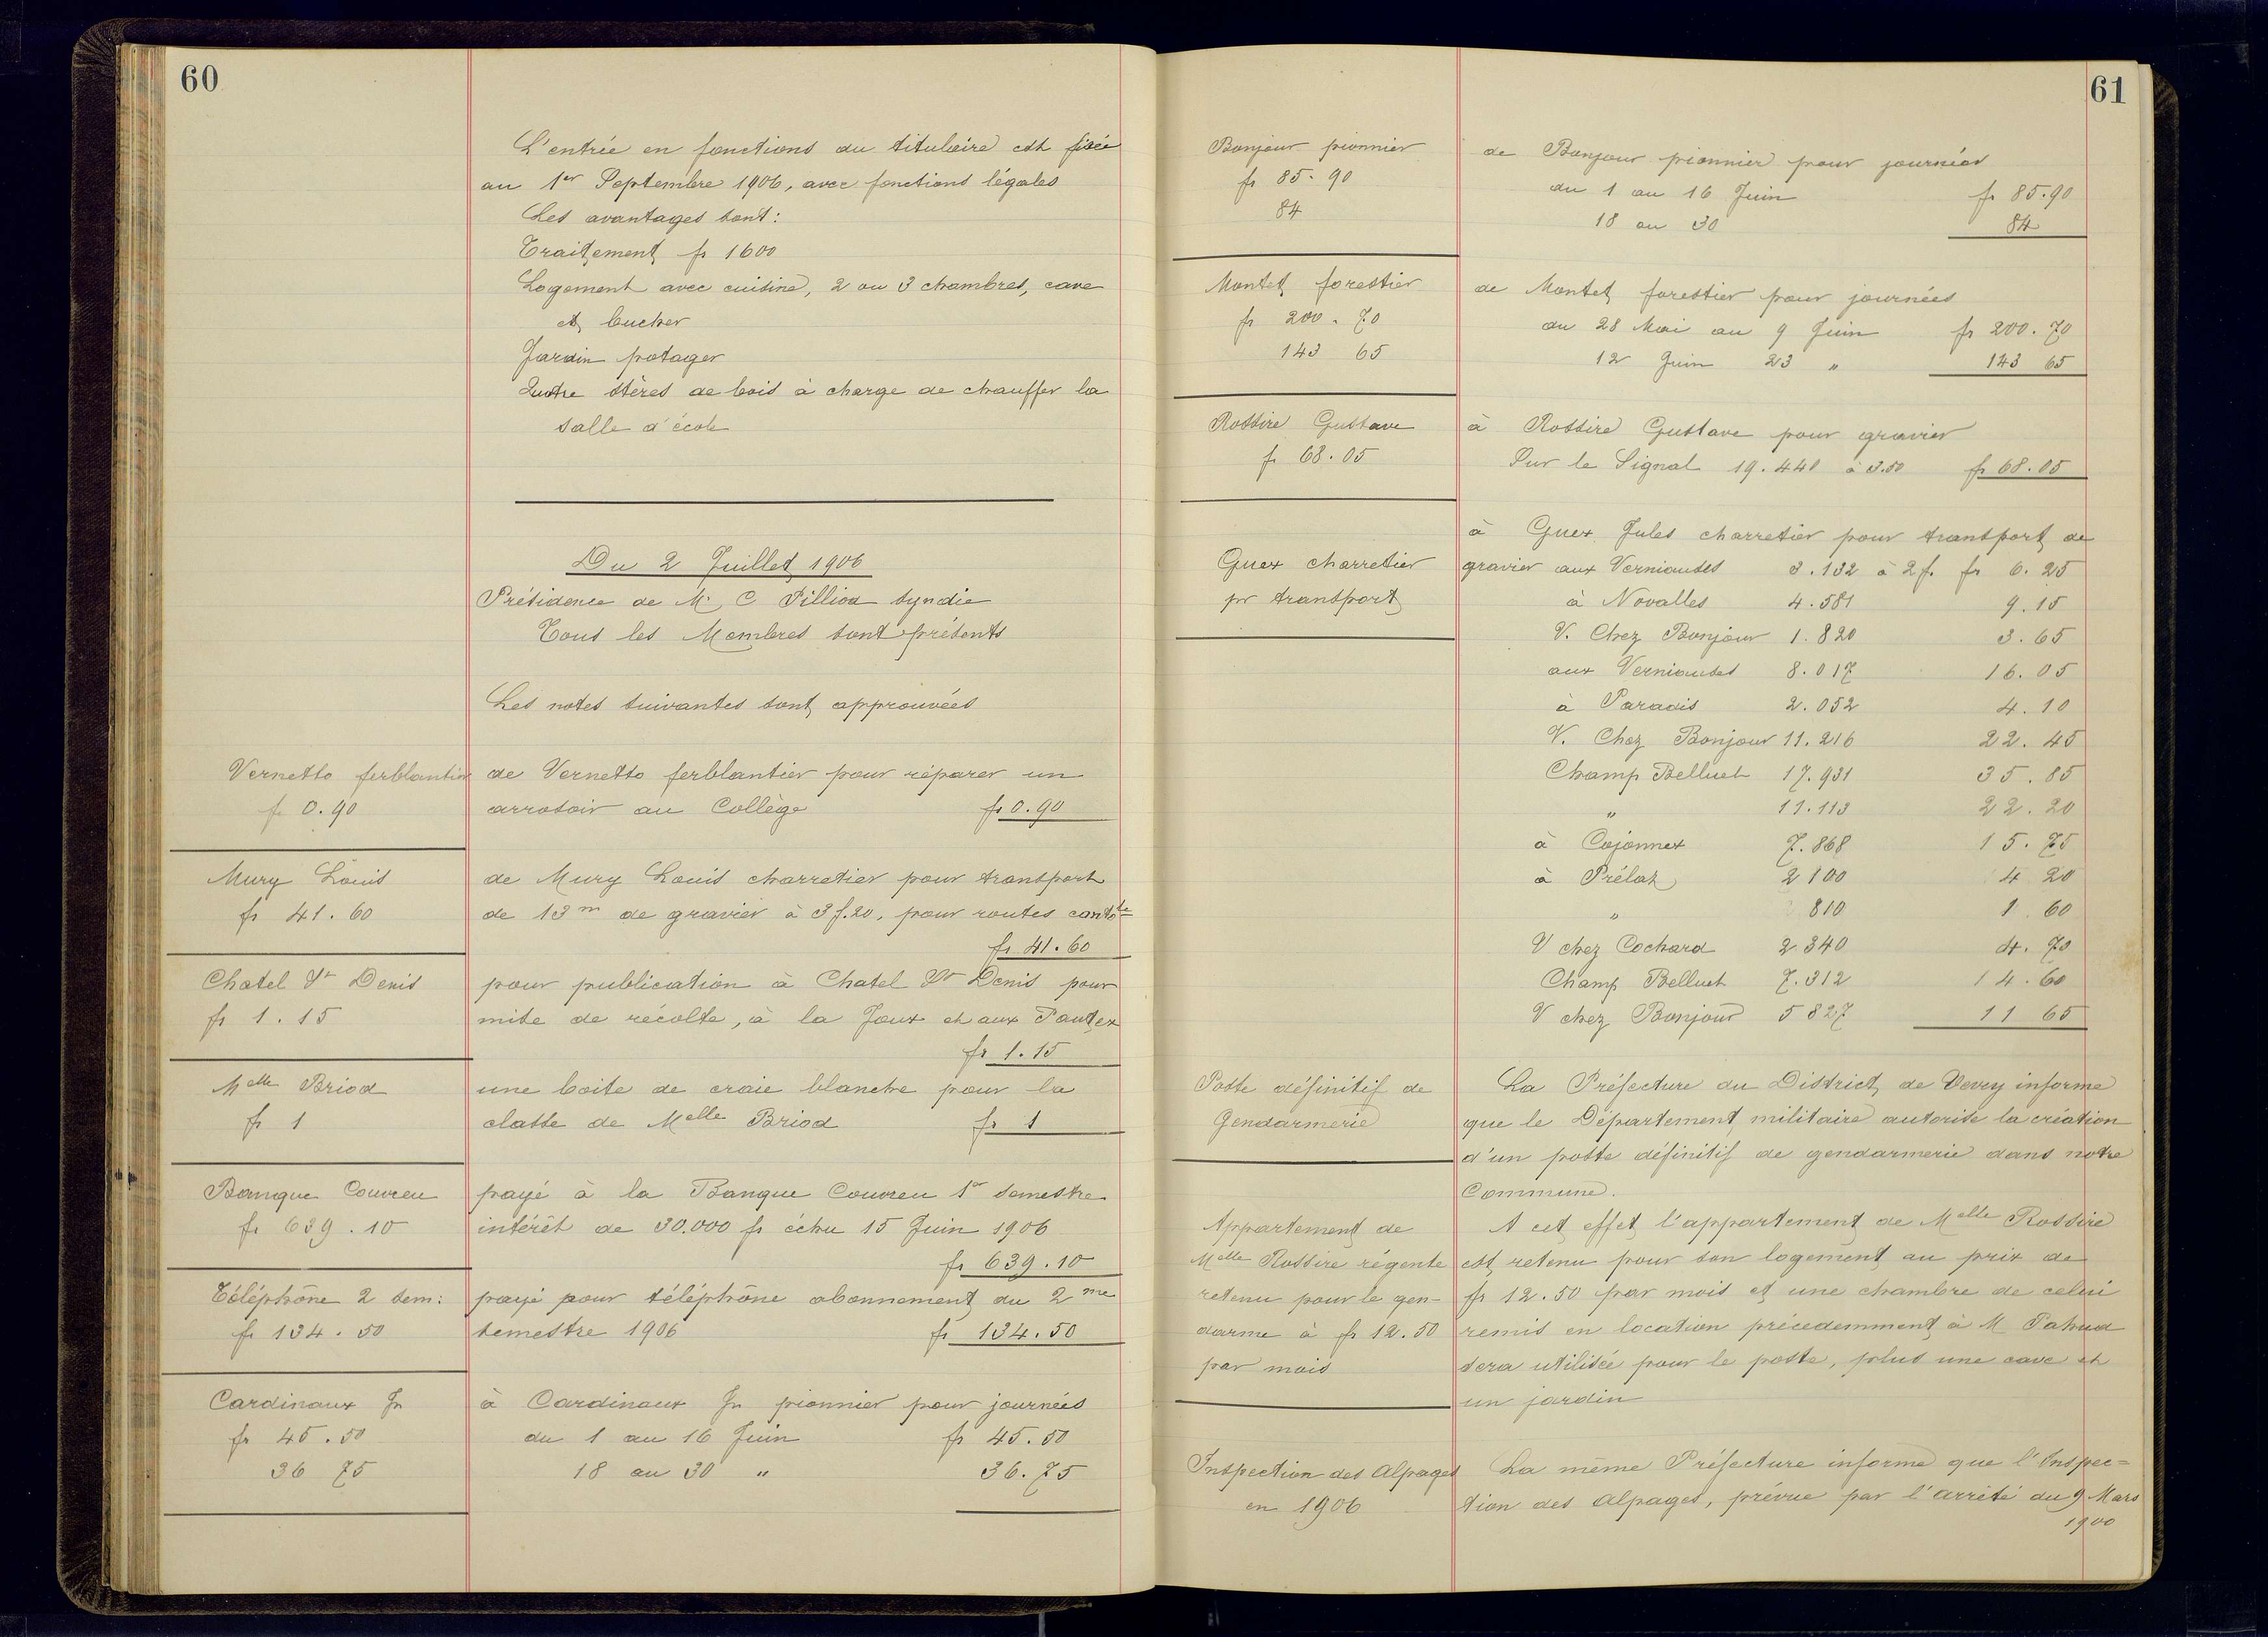 60
L'entrée en fonctions du titulaire est fixée
au 1er Septembre 1906, avec fonctions légales
Les avantages sont:
Traitement fr 1600
Logement avec cuisine, 2 ou 3 chambres, cave
et bucher
Jardin potager
Quatre stères de bois à charge de chauffer la
salle d'école
Du 2 Juillet 1906
Présidence de M. C Pilliod syndic
Tous les Membres sont présents
Les notes suivantes sont approuvées
Vernetto ferblantier
fr 0.90
de Vernetto ferblantier pour réparer un
arrosoir au Collège fr 0.90
Mury Louis
fr 41.60
de Mury Louis charretier pour transport
de 13m de gravier à 3f.20, pour routes cantle
fr 41.60
Chatel St Denis
fr 1.15
pour publication à Chatel St Denis pour
mise de récolte, à la Joux et aux Pautex
fr 1.15
Melle Briod
fr 1
une boite de craie blanche pour la
classe de Melle Briod fr 1
Banque Couvreu
fr 639.10
payé à la Banque Couvreu 1r semestre
intérêt de 30.000 fr échu 15 Juin 1906
fr 639.10
Téléphône 2 sem:
fr 134.50
payé pour téléphône abonnement du 2me
semestre 1906 fr 134.50
Cardinaux Jn
fr 45.50
36 75
à Cardinaux Jn pionnier pour journées
du 1 au 16 Juin fr 45.50
18 au 30 " 36.75
61
Bonjour pionnier
fr 85.90
84
de Bonjour pionnier pour journées
du 1 au 16 Juin fr 85.90
18 au 30 84
Montet forestier
fr 200.70
143 65
de Montet forestier pour journées
du 28 Mai au 9 Juin fr 200.70
12 Juin 23 " 143 65
Rossire Gustave
fr 68.05
à Rossire Gustave pour gravier
Sur le Signal 19.440 à 3.50 fr 68.05
Guex charretier
pr transport
à Guex Jules charretier pour transport de
gravier aux Verniaudes 3.132 à 2f. fr 6.25
à Novalles 4.581 9.15
V. Chez Bonjour 1.820 3.65
aux Verniaudes 8.017 16.05
à Paradis 2.052 4.10
V. Chez Bonjour 11.216 22.45
Champ Belluet 17.931 35.85
" 11.113 22.20
à Cojonnex 7.868 15.75
à Prélaz 2100 4 20
" 810 1.60
V chez Cochard 2340 4.70
Champ Belluet 7.312 14.60
V chez Bonjour 5827 11 65
Poste définitif de
Gendarmerie
La Préfecture du District de Vevey informe
que le Département militaire autorise la création
d'un poste définitif de gendarmerie dans notre
Commune.
Appartement de
Melle Rossire régente
retenu pour le gen-
darme à fr 12.50
par mois
A cet effet l'appartement de Melle Rossire
est retenu pour son logement au prix de
fr 12.50 par mois et une chambre de celui
remis en location précedemment à M Pahud
sera utilisée pour le poste, plus une cave et
un jardin
Inspection des Alpages
en 1906
La même Préfecture informe que l'Inspec=
tion des Alpages, prévue par l'arrêté du 9 Mars
1900